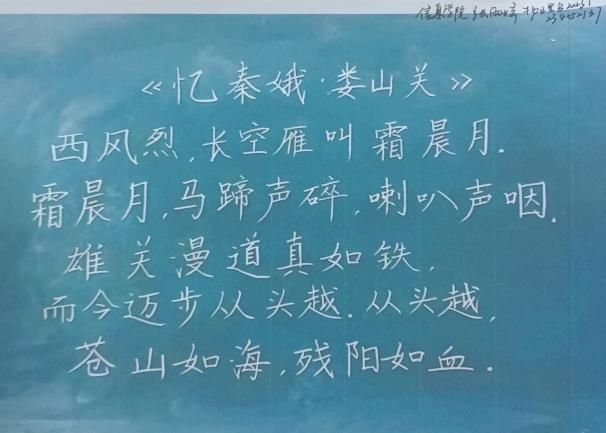 信息学院
《忆秦娥·娄山关》
西风烈,长空雁叫霜晨月.
霜晨月,马蹄声碎,喇叭声咽.
雄关漫道真如铁,
而今迈步从头越.从头越,
苍山如海,残阳如血.